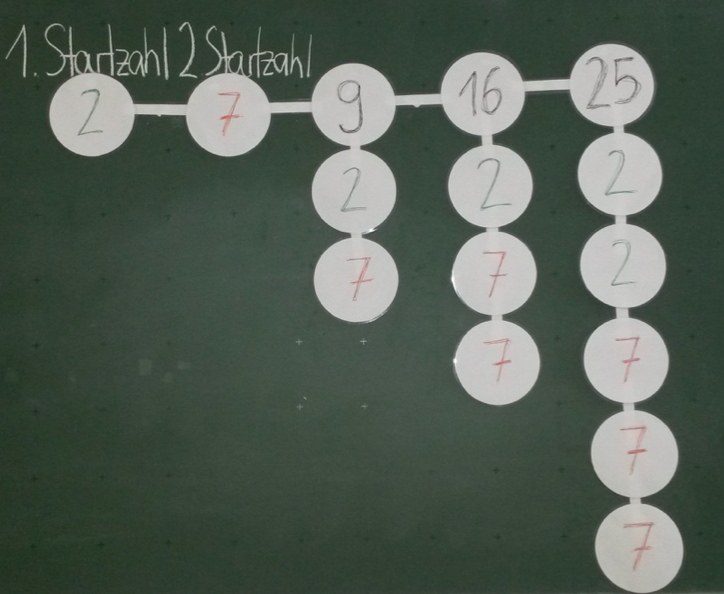 1. Startzahl 2 Startzahl
2 7 9 16 25
2 2 2
7 7 2
7 7
7
7